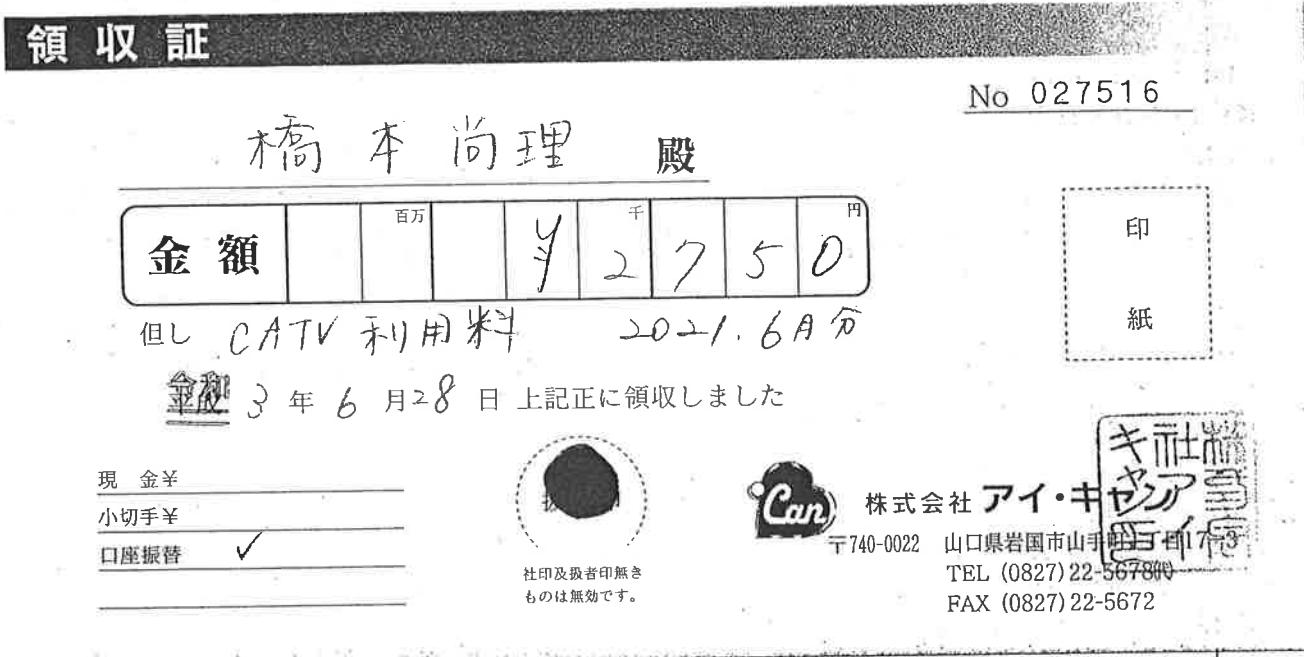 領収証
No 027516
橋本尚理 殿
金額 百万 ¥ 千 2 7 5 0 円
但し CATV利用料 2021.6月分
3年6月28日 上記正に領収しました
印
紙
現 金¥
小切手¥
口座振替 ✓
社印及扱者印無き
ものは無効です。
Can
株式会社 アイ・キャン
〒740-0022 山口県岩国市山手町 丁目17-3
TEL (0827)22-5678㈹
FAX (0827)22-5672